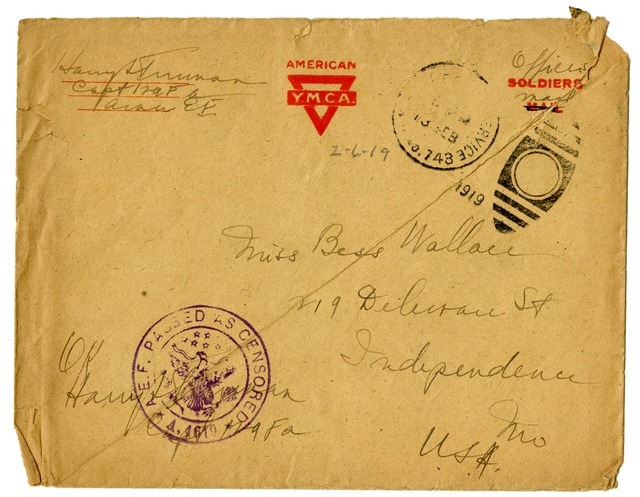 Harry S Truman
Capt 129 F A
AMERICAN
Y.M.C.A.
Officers
SOLDIERS
mail
MAIL
SERVICE
NO. 748
13 FEB
1919
2-6-19
Miss Bess Wallace
219 Delaware St
Independence
Mo
USA.
A.E.F. PASSED AS CENSORED
A. 1619
OK
Harry S Truman
Capt 129 FA